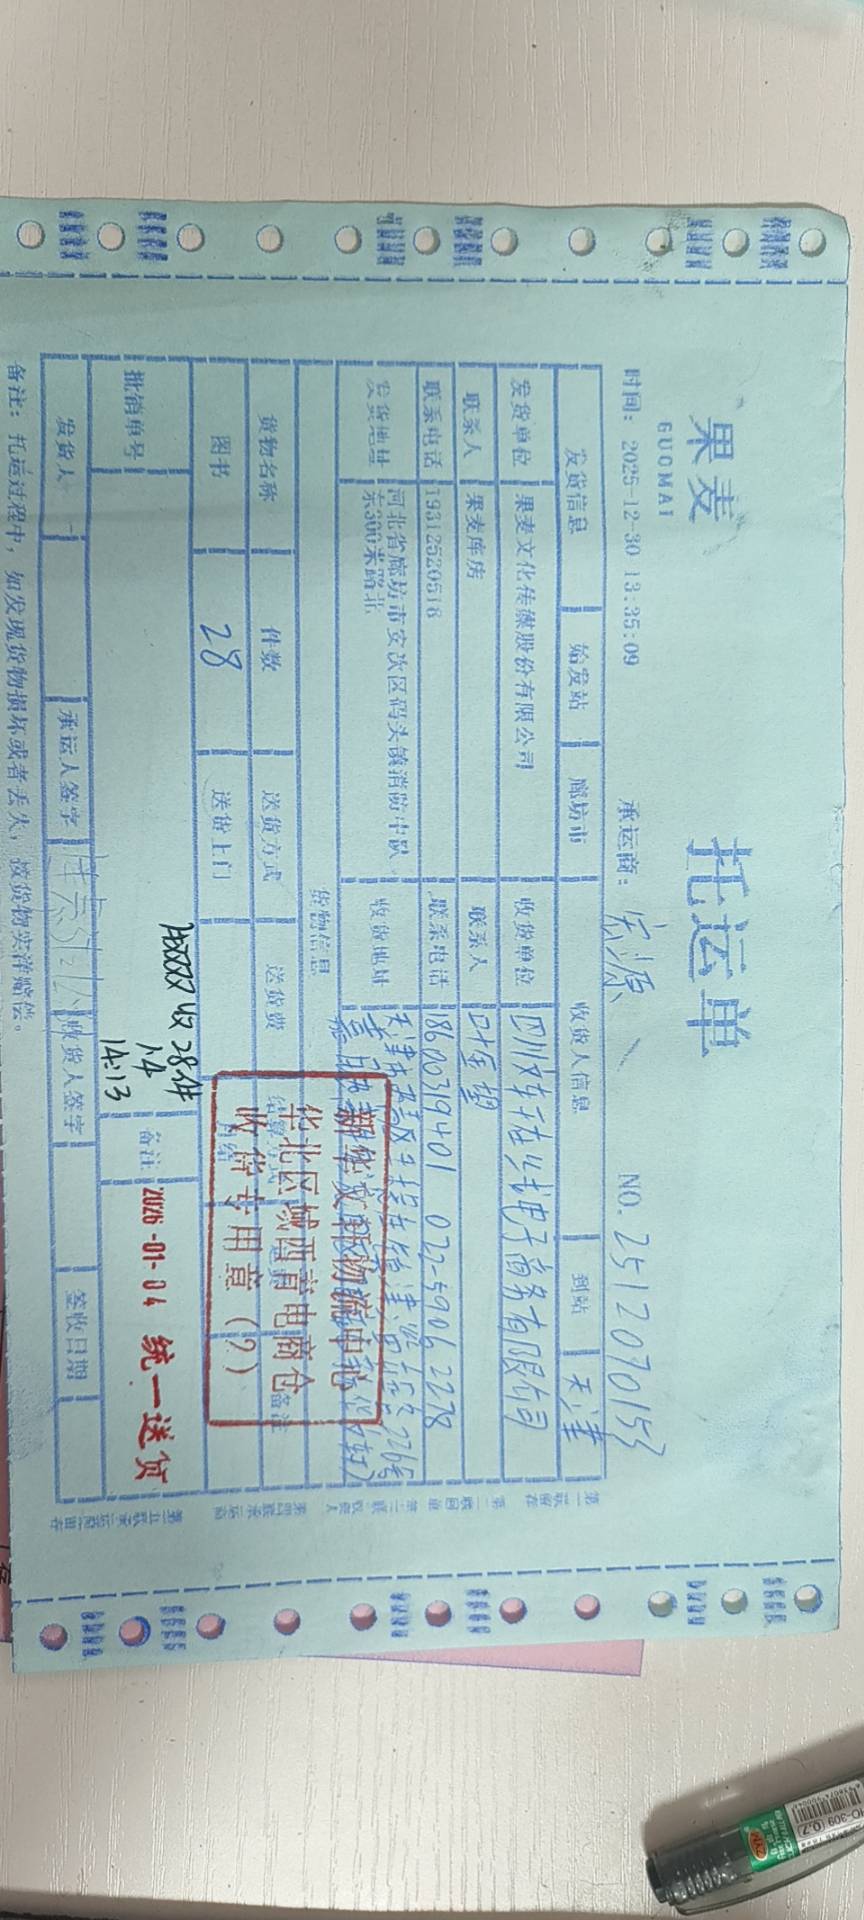 果麦
GUOMAI
托运单
时间: 2025-12-30 13:35:09 承运商: 宏源 NO. 2512070153
发货信息 始发站 廊坊市 收货人信息 到站 天津
发货单位 果麦文化传媒股份有限公司 收货单位 四川文轩在线电子商务有限公司
联系人 果麦库房 联系人 叶金望
联系电话 19312520518 联系电话 18600319401 022-59062278
发货地址 河北省廊坊市安次区码头镇消防中队
东300米路北 收货地址 天津市西青区
货物信息
货物名称 件数 送货方式 送货费 结算方式 备注
图书 28 送货上门
新华文轩物流中心
华北区域西青电商仓
收货专用章(2)
批销单号 收28件
1.4
14:13
备注: 2026-01-04 统一送货
发货人 承运人签字 收货人签字 签收日期
备注: 托运过程中, 如发现货物损坏或者丢失, 按货物实洋赔偿。
第一联留存 第二联回单 第三联收货人 第四联承运商 第五联承运商留存